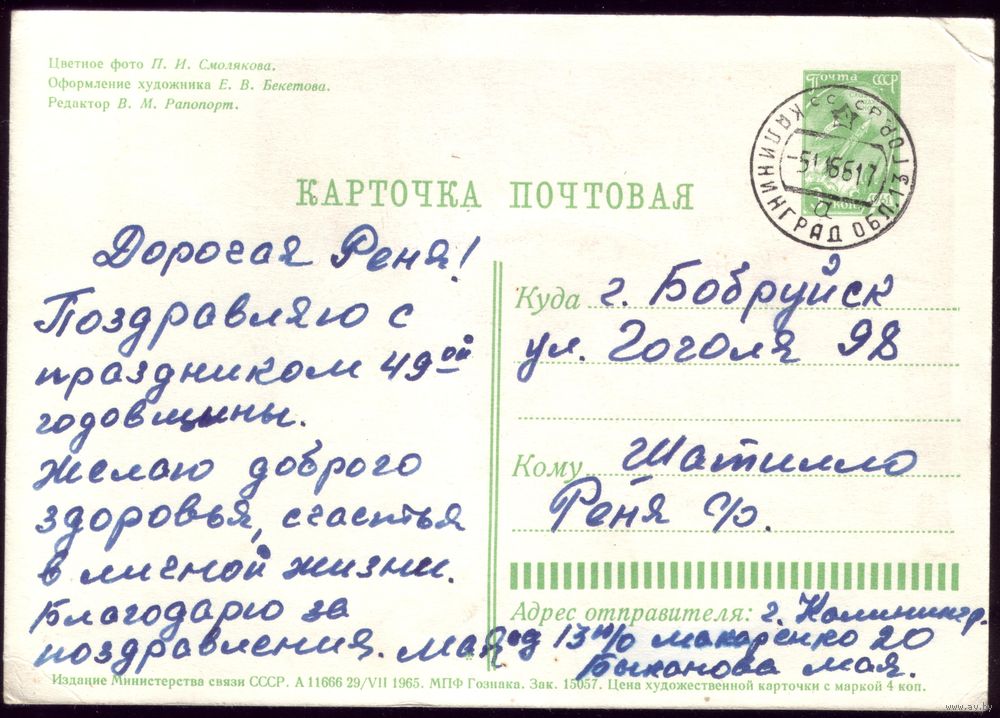 Цветное фото П. И. Смолякова.
Оформление художника Е. В. Бекетова.
Редактор В. М. Рапопорт.
Почта СССР
КАЛИНИНГРАД ОБЛ. 13
КАРТОЧКА ПОЧТОВАЯ
Дорогая Реня!
Поздравляю с
праздником 49ой
годовщины.
Желаю доброго
здоровья, счастья
в личной жизни.
Благодарю за
поздравления. Мая
Куда г. Бобруйск
ул. Гоголя 98
Кому Шатилло
Реня С/р.
Адрес отправителя: г. Калинингр.
ад 13 п/о Макаренко 20
Быханова Мая.
Издание Министерства связи СССР. А 11666 29/VII 1965. МПФ Гознака. Зак. 15057. Цена художественной карточки с маркой 4 коп.
www.av.by